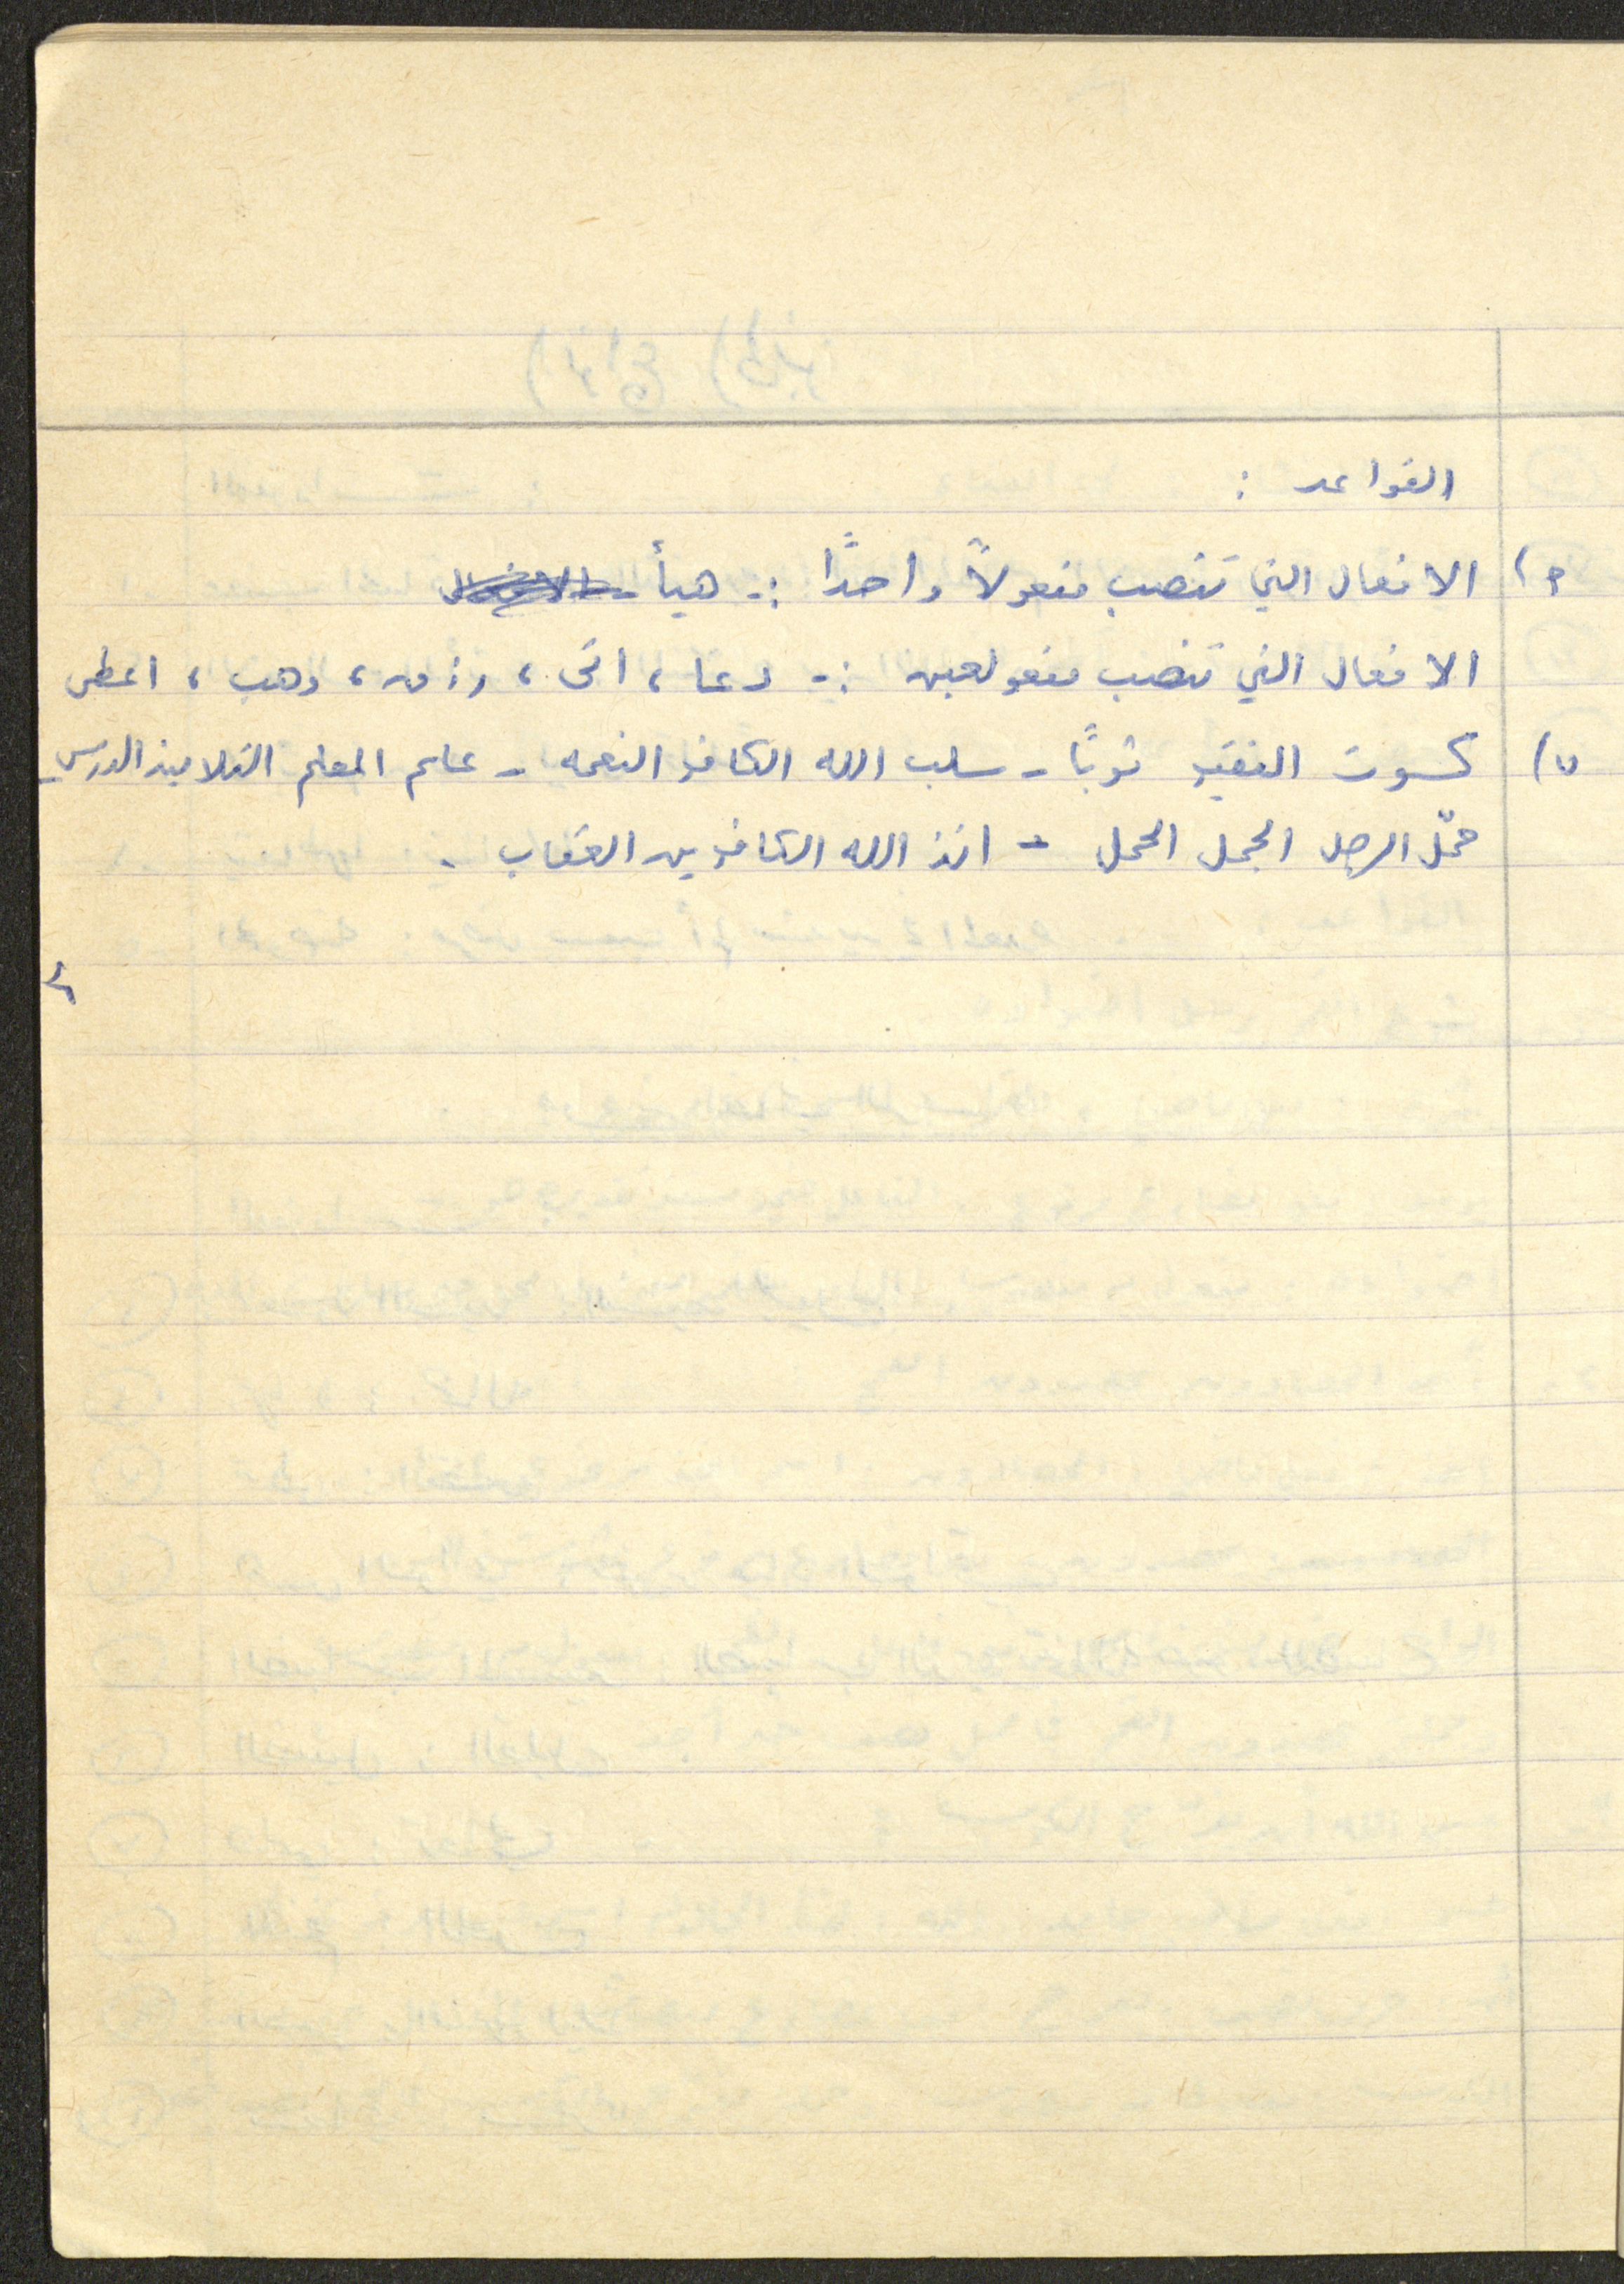 القواعد :
٦) الافعال التي تنصب مفعولاً واحدًا :- هيأ
الافعال التي تنصب مفعولين :- دعا ، اتى ، رزق ، وهب ، اعطى
٧) كسوت الفقير ثوبًا - سلب الله الكافر النعمه - علم المعلم التلاميذ الدرس -
حمّل الرجل الجمل الحمل - انذ الله الكافرين العقاب .